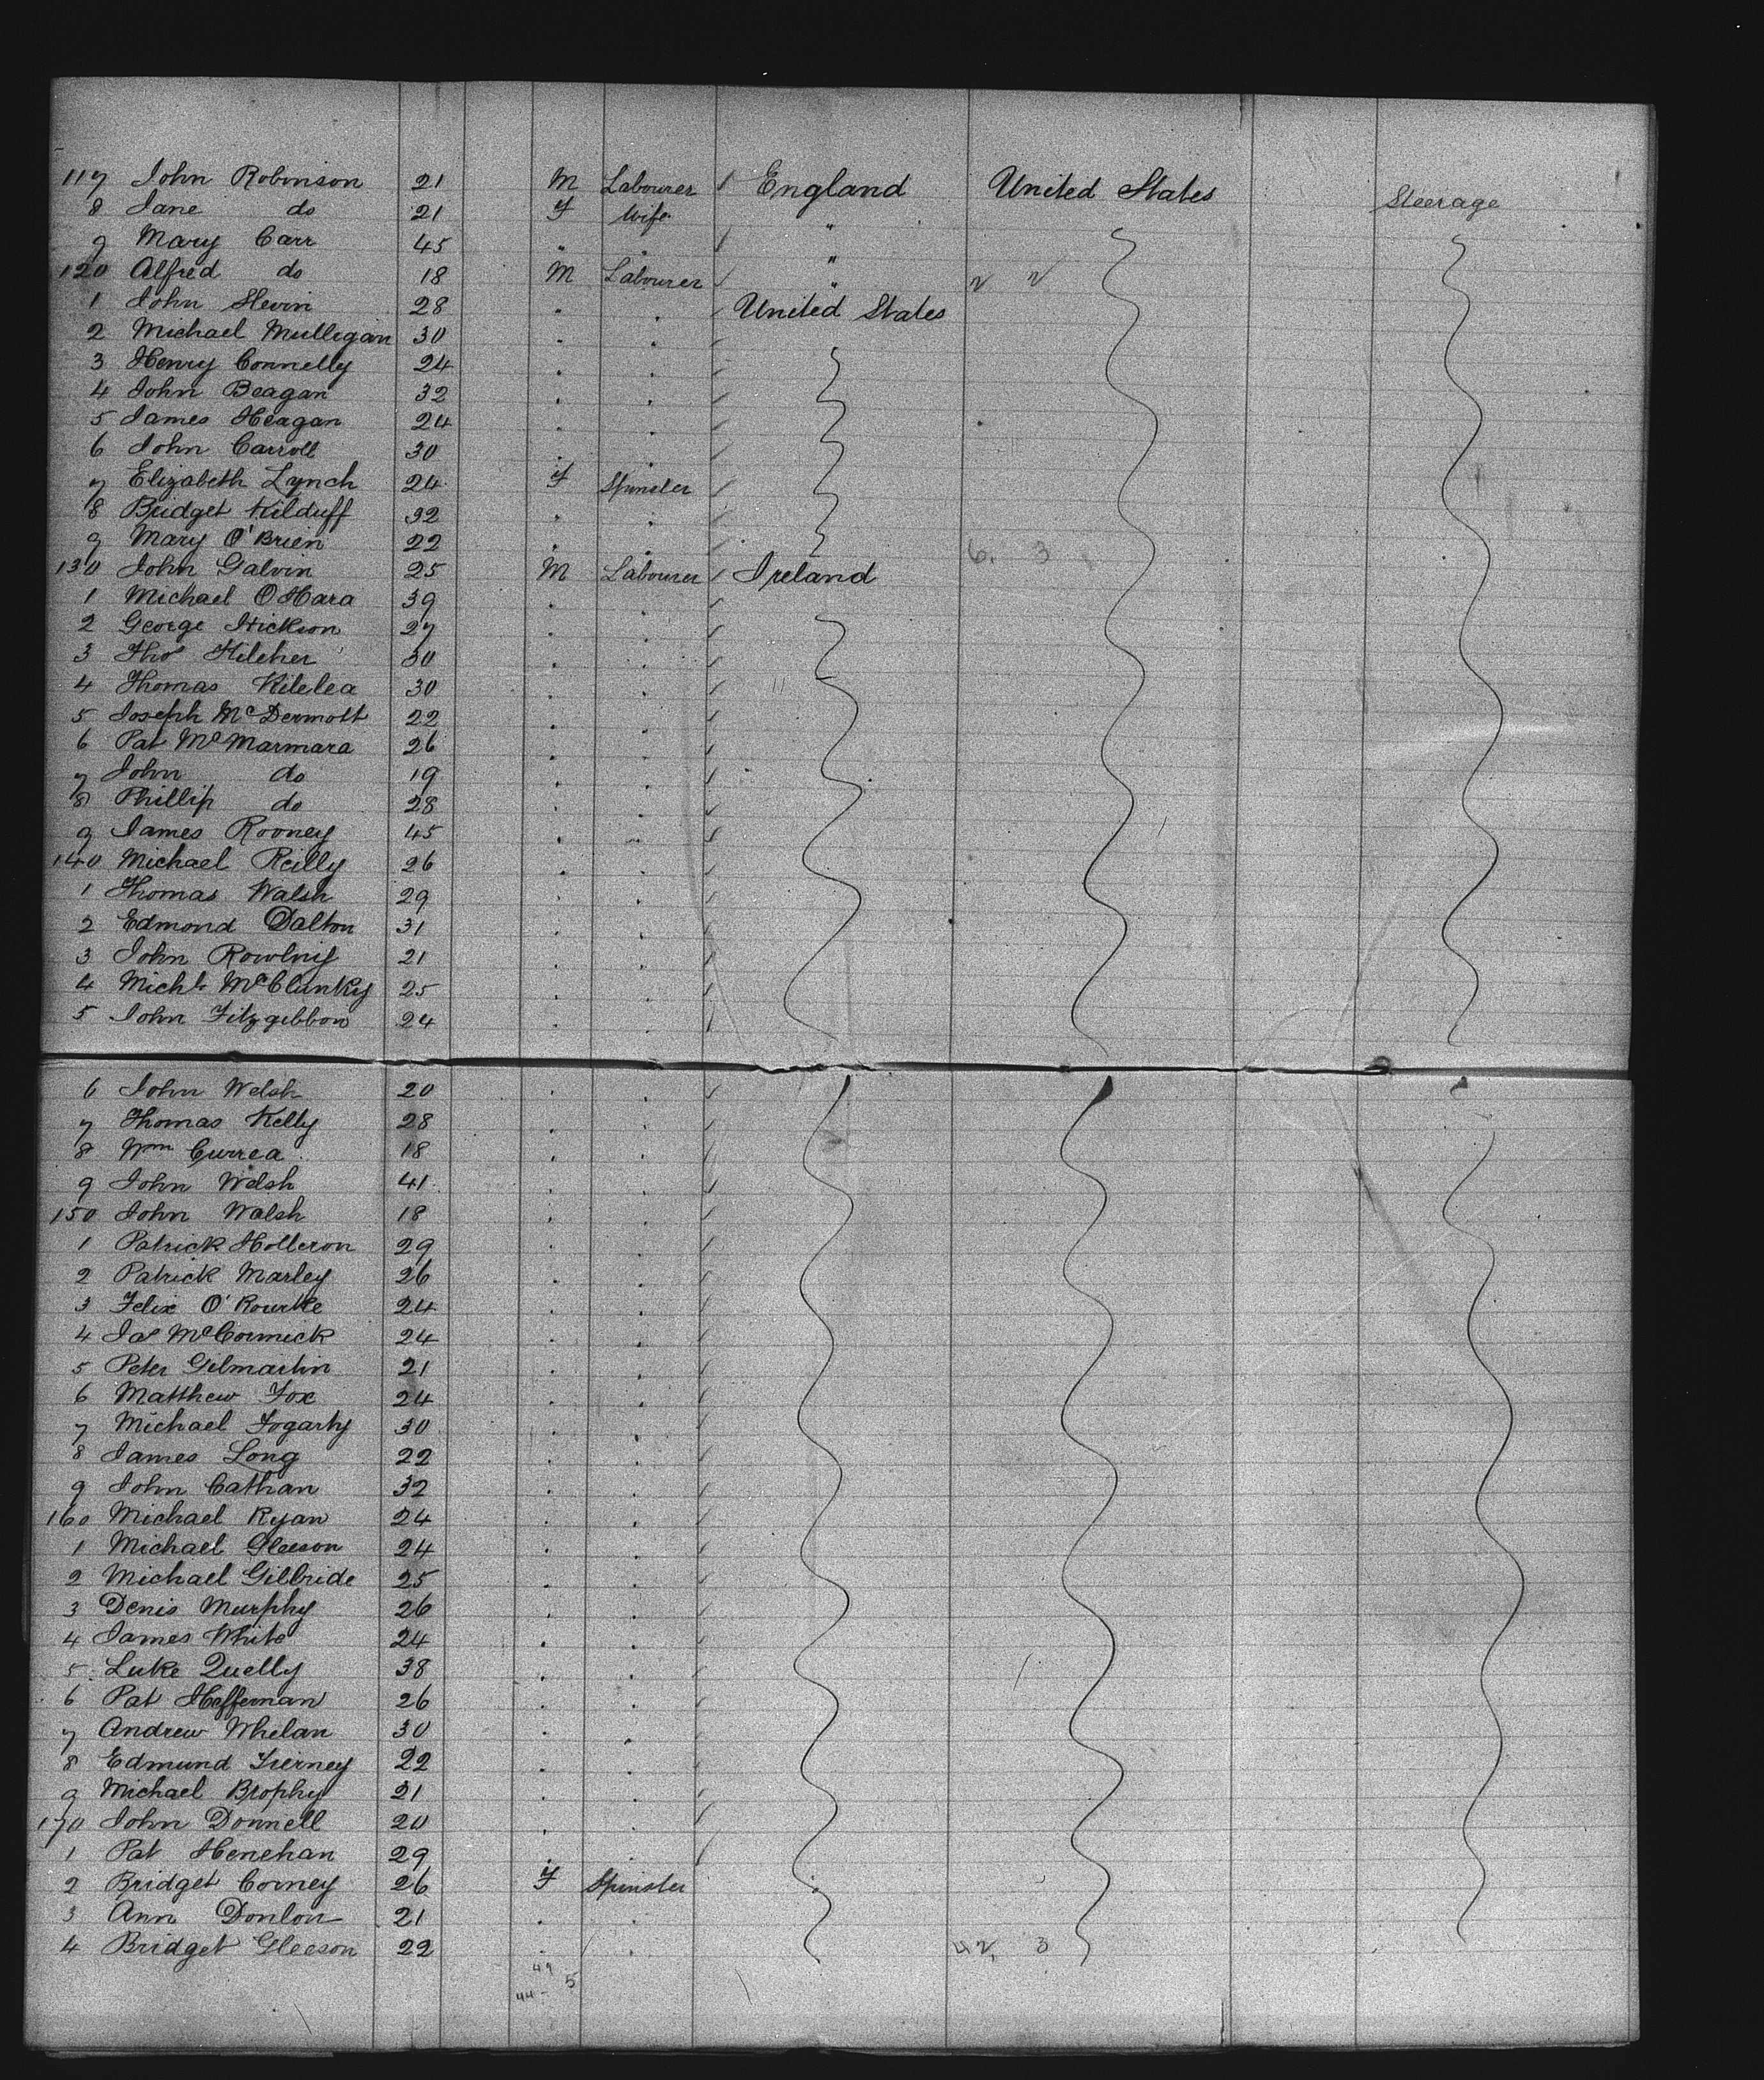 117 John Robinson 21 M Labourer England United States Steerage
8 Jane do 21 F Wife "
9 Mary Carr 45 " " "
120 Alfred do 18 M Labourer "
1 John Slevin 28 " " United States
2 Michael Mulligan 30
3 Henry Connelly 24
4 John Beagan 32
5 James Heagan 24
6 John Carroll 30
7 Elizabeth Lynch 24 F Spinster
8 Bridget Kilduff 32
9 Mary O'Brien 22 6. 3
130 John Galvin 25 M Labourer Ireland
1 Michael O'Hara 39
2 George Hickson 27
3 Thos Kilcher 30
4 Thomas Kilelea 30
5 Joseph McDermott 22
6 Pat McMarmara 26
7 John do 19
8 Phillip do 28
9 James Rooney 45
140 Michael Reilly 26
1 Thomas Walsh 29
2 Edmond Dalton 31
3 John 21
4 Michl McClunky 25
5 John Fitzgibbon 24
6 John Welsh 20
7 Thomas Kelly 28
8 Wm Currea 18
9 John Welsh 41
150 John Walsh 18
1 Patrick Holleron 29
2 Patrick Marley 26
3 Felix O'Rourke 24
4 Jas McCormick 24
5 Peter Gilmartin 21
6 Matthew Fox 24
7 Michael Fogarty 30
8 James Long 22
9 John Cathan 32
160 Michael Ryan 24
1 Michael Gleeson 24
2 Michael Gilbride 25
3 Denis Murphy 26
4 James White 24
5 Luke Quelly 38
6 Pat Heffernan 26
7 Andrew Whelan 30
8 Edmund Tierney 22
9 Michael Brophy 21
170 John Donnell 20
1 Pat Henehan 29
2 Bridget Corney 26 F Spinster
3 Ann Donlon 21
4 Bridget Gleeson 22 42, 3
49
44 - 5